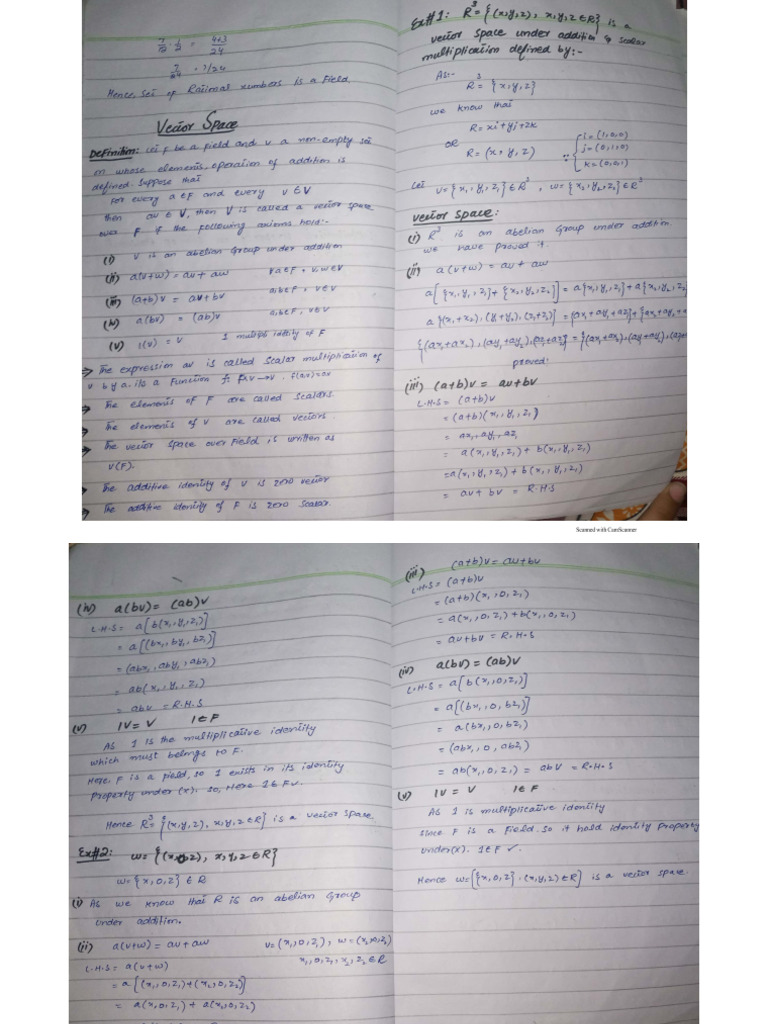 7/12 · 1/2 = 4+3/24
7/24 = 7/24
Hence, set of Rational numbers is a Field.
Vector Space
Definition: Let F be a field and V a non-empty set
on whose elements, operation of addition is
defined. Suppose that
for every a∈F and every v∈V
then av∈V, then V is called a vector space
over F if the following axioms hold:-
(i) V is an abelian Group under addition
(ii) a(v+w) = av + aw ∀a∈F, v,w∈V
(iii) (a+b)v = av+bv a,b∈F, v∈V
(iv) a(bv) = (ab)v a,b∈F, v∈V
(v) 1(v) = V 1 multiple idntity of F
→ The expression av is called scalar multiplication of
v by a. it is a function f: FxV→V. f(a,v)=av
→ The elements of F are called scalars.
→ The elements of V are called vectors.
→ The vector space over field, is written as
V(F).
→ The additive identity of V is zero vector
→ The additive identity of F is zero scalar.
Ex#1: R³ = {(x,y,z), x,y,z∈R} is a
vector space under addition & scalar
multiplication defined by:-
As:-
R³ = {x,y,z}
we know that
R = xi+yj+zk
OR
R = (x, y, z) ∵ {i = (1,0,0)
j = (0,1,0)
k = (0,0,1)
Let v={x₁,y₁,z₁}∈R³, w={x₂,y₂,z₂}∈R³
vector space:
(i) R³ is an abelian Group under addition.
we have proved it.
(ii) a(v+w) = av + aw
a[{x₁,y₁,z₁}+{x₂,y₂,z₂}] = a{x₁,y₁,z₁}+a{x₂,y₂,z₂
a{(x₁+x₂),(y₁+y₂),(z₁+z₂)} = {ax₁+ay₁+az₁}+{ax₂+ay₂+
{(ax₁+ax₂),(ay₁+ay₂),(az₁+az₂)} = {(ax₁+ax₂),(ay₁+ay₂),(az
proved:
(iii) (a+b)v = av+bv
L.H.S = (a+b)v
= (a+b)(x₁,y₁,z₁)
= ax₁,ay₁,az₁
= a(x₁,y₁,z₁) + b(x₁,y₁,z₁)
= a(x₁,y₁,z₁) + b(x₁,y₁,z₁)
= av+bv = R.H.S
Scanned with CamScanner
(iv) a(bv) = (ab)v
L.H.S = a[b(x₁,y₁,z₁)]
= a[(bx₁,by₁,bz₁)]
= (abx₁,aby₁,abz₁)
= ab(x₁,y₁,z₁)
= abv = R.H.S
(v) 1V = V 1∈F
As 1 is the multiplicative identity
which must belongs to F.
Here F is a field, so 1 exists in its identity
property under (x). so, Here 1∈F✓.
Hence R³={(x,y,z), x,y,z∈R} is a vector space.
Ex#2: w={(x,0,z), x,y,z∈R}
w={x,0,z}∈R
(i) As we know that R is an abelian Group
under addition.
(ii) a(v+w) = av+aw v=(x₁,0,z₁), w=(x₂,0,z₂)
L.H.S = a(v+w) x₁,0,z₁,x₂,z₂∈R
= a[(x₁,0,z₁)+(x₂,0,z₂)]
= a(x₁,0,z₁) + a(x₂,0,z₂)
(iii) (a+b)v = av+bv
L.H.S = (a+b)v
= (a+b)(x₁,0,z₁)
= a(x₁,0,z₁)+b(x₁,0,z₁)
= av+bv = R.H.S
(iv) a(bv) = (ab)v
L.H.S = a[b(x₁,0,z₁)]
= a[(bx₁,0,bz₁)]
= a(bx₁,0,bz₁)
= (abx₁,0,abz₁)
= ab(x₁,0,z₁) = abV = R.H.S
(v) 1V = V 1∈F
As 1 is multiplicative identity
since F is a field. so it hold identity property
under(x). 1∈F ✓.
Hence w={{x,0,z}.(x,y,z)∈R} is a vector space.